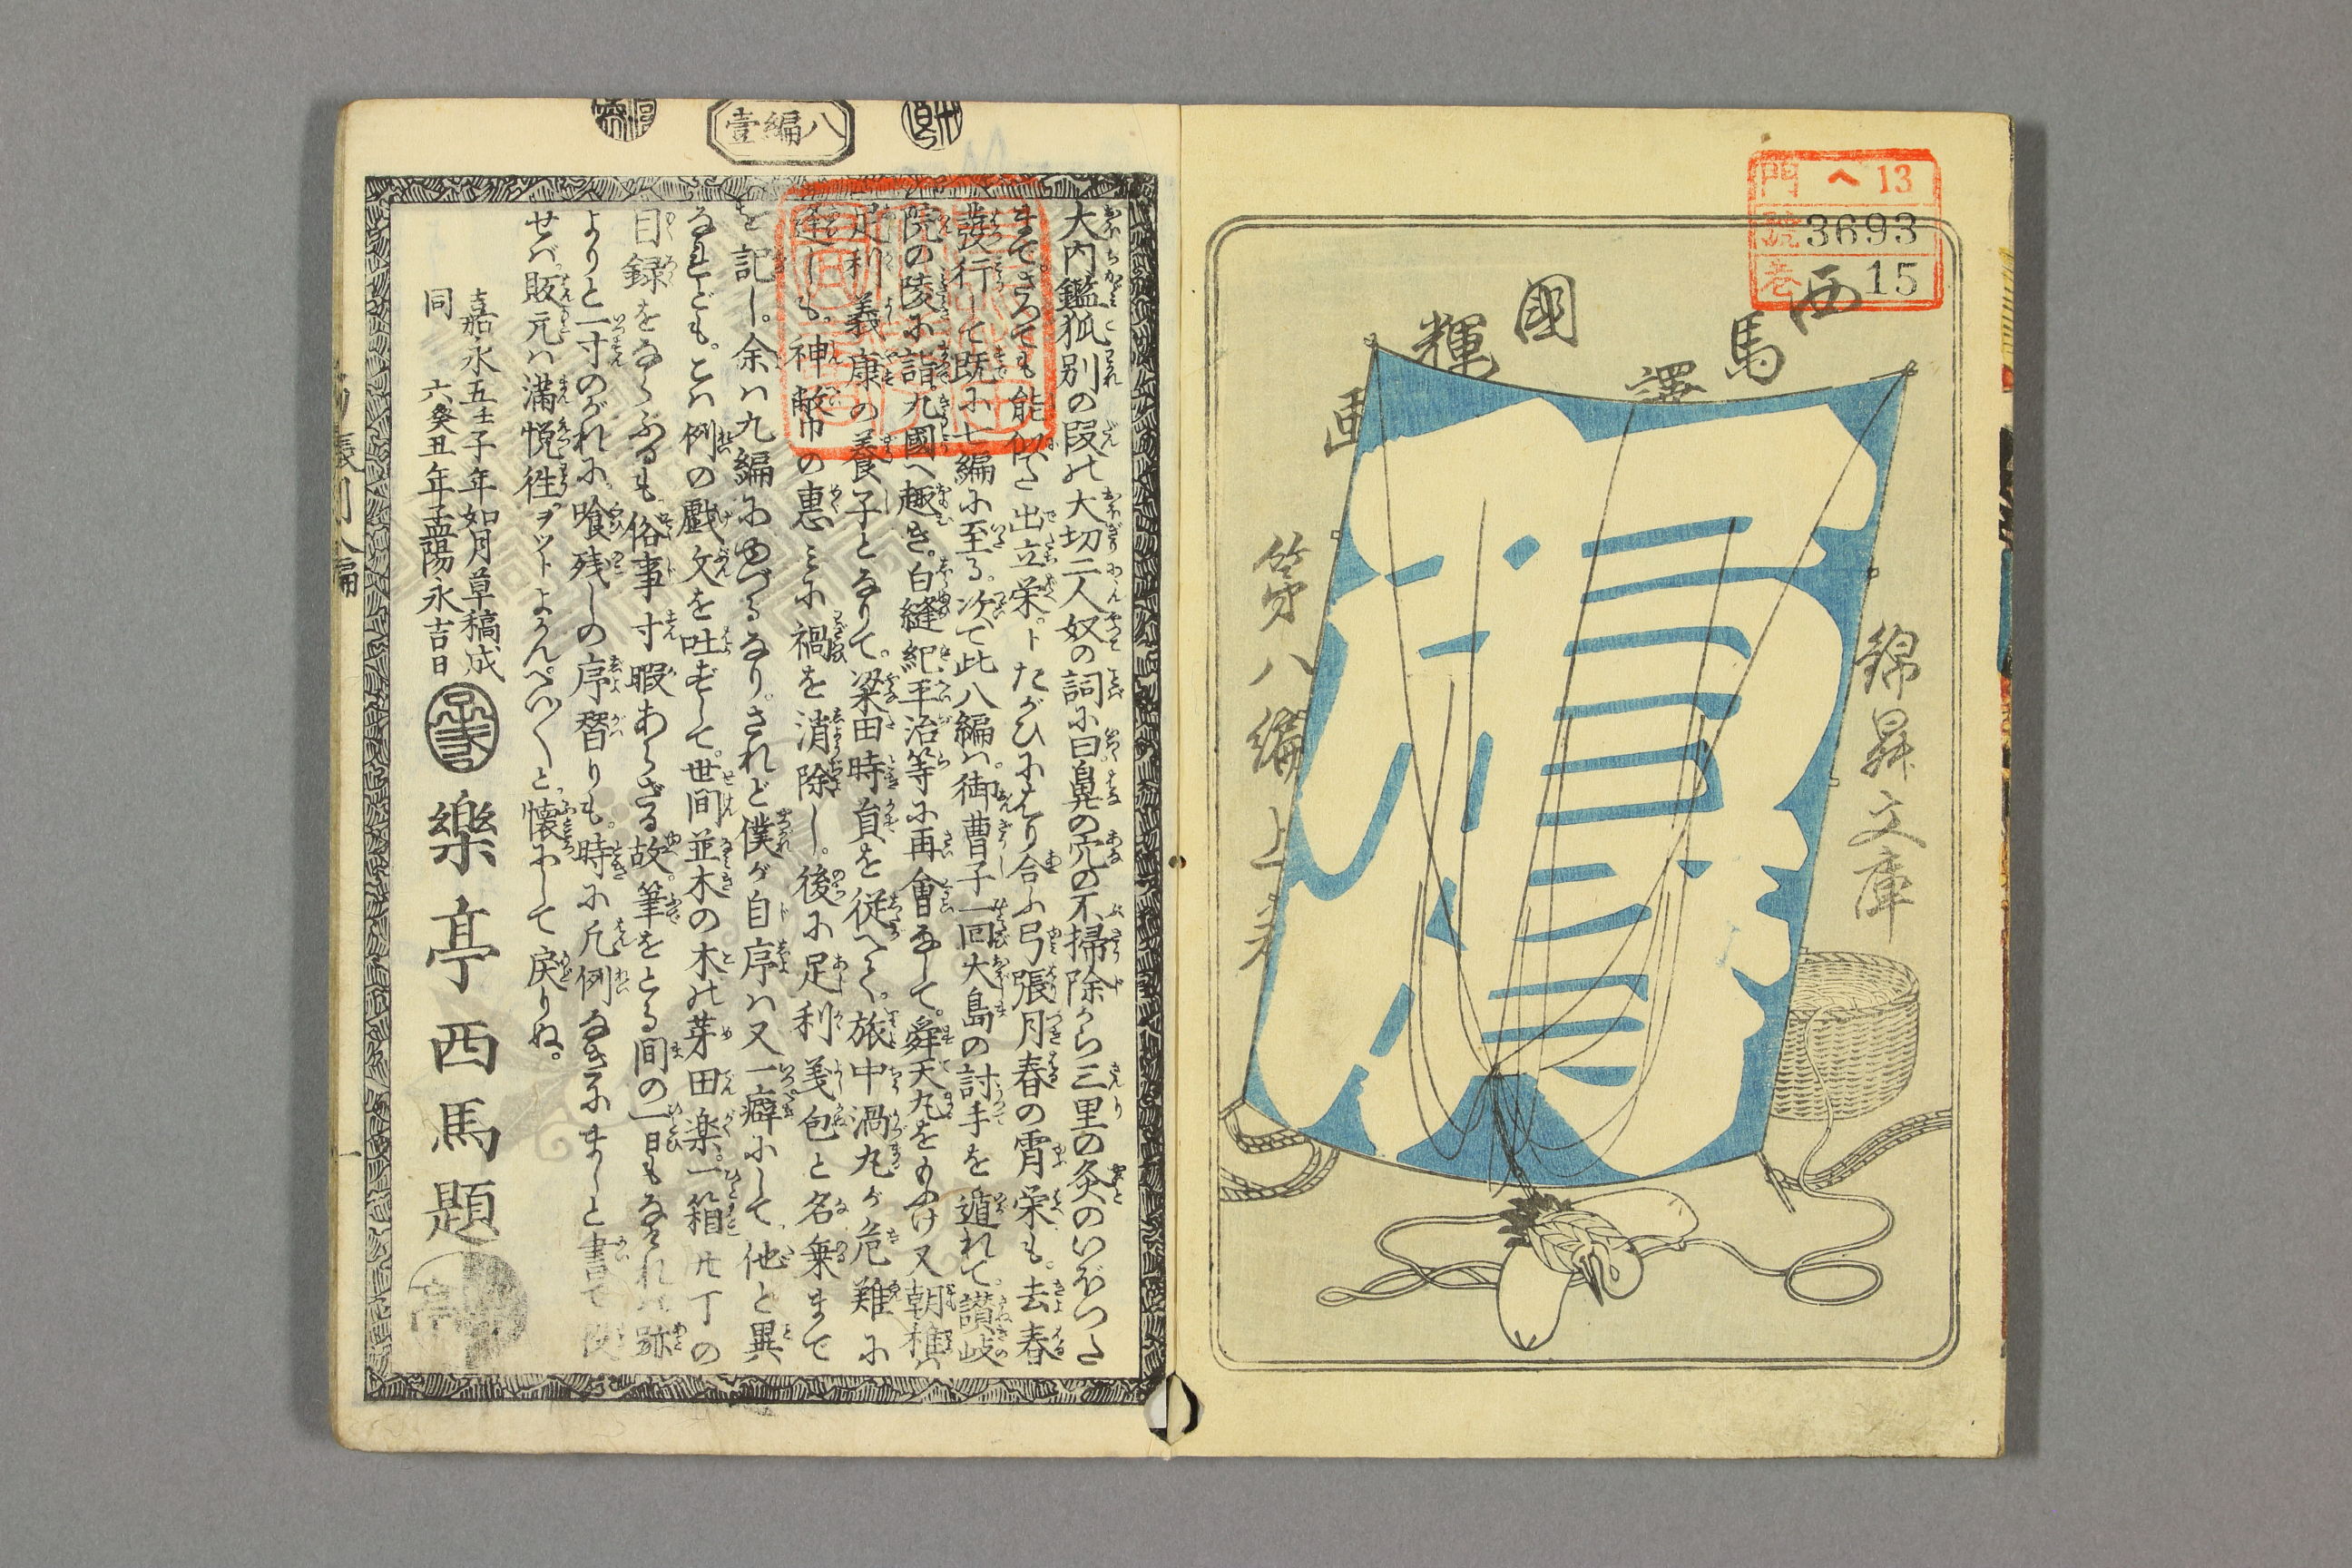 門 ヘ 13
號 3693
巻 15
西馬譯
國輝画
錦昇文庫
弓張月
第八編上巻
八編壹
大内鑑狐別の段の大切二人奴の詞に曰鼻の穴の不掃除から三里の灸のいぼつた
までさろても能似た出立栄トたがひにそり合ふ弓張月春の霄栄も。去春
發行して既に七編に至る。次て此八編ハ。御曹子一回大島の討手を遁れて。讃岐
院の陵に詣。九國へ趣き。白縫紀平治等に再會なして。舜天丸をもふけ又朝稚ハ
足利義康の養子となりて。梁田時員を従へて。旅中渦丸が危難に
逢しも。神敝巾の恵ミに禍を消除し。後に足利義包と名乗まで
を記し。余ハ九編にゆづるなり。されど僕が自序ハ又一癖にして他と異
なれども。こハ例の戯文を吐ずして。世間並木の木の芽田楽。一箱廿丁の
目録をならぶるも。俗事寸暇あらざる故。筆をとる間の一日もなけれバ跡
よりと一寸のがれに。喰残しの序替りも。時に凡例なきにましと書て
せバ販元ハ満悦徃ヲツトよろんべい〱と。懐にして戻りぬ。
嘉永五壬子年如月草稿成
同 六癸丑年孟陽永吉日
樂亭西馬題